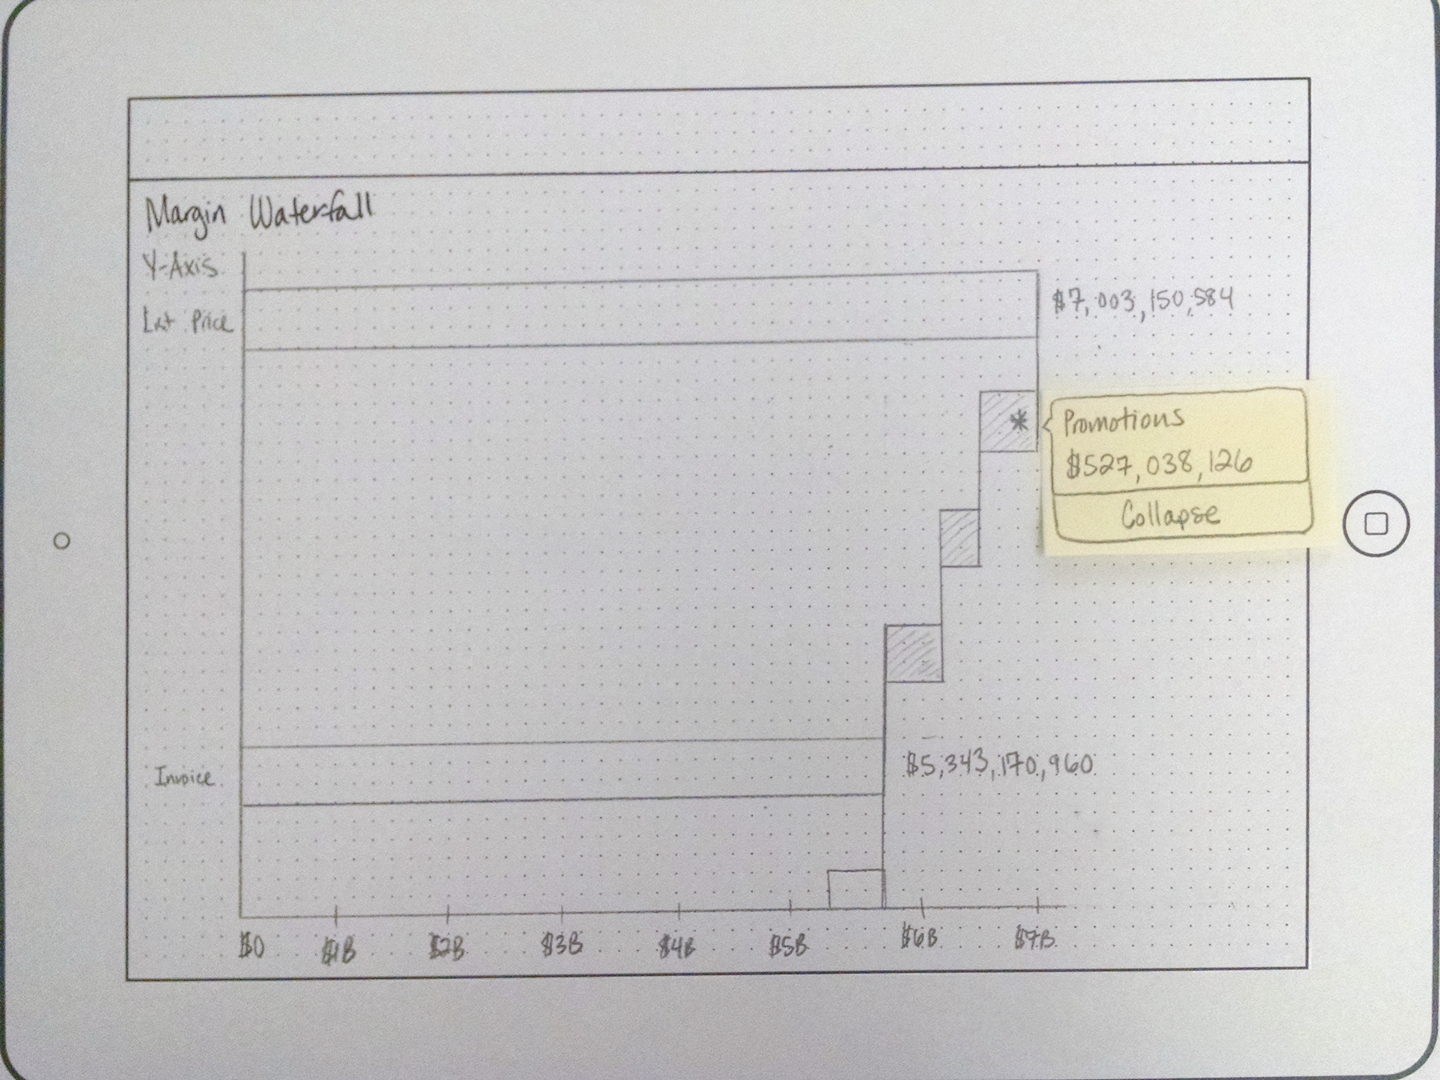 Margin Waterfall
Y-Axis
List Price
$7,003,150,584
Promotions
$527,038,126
Collapse
Invoice
$5,343,170,960
$0 $1B $2B $3B $4B $5B $6B $7B